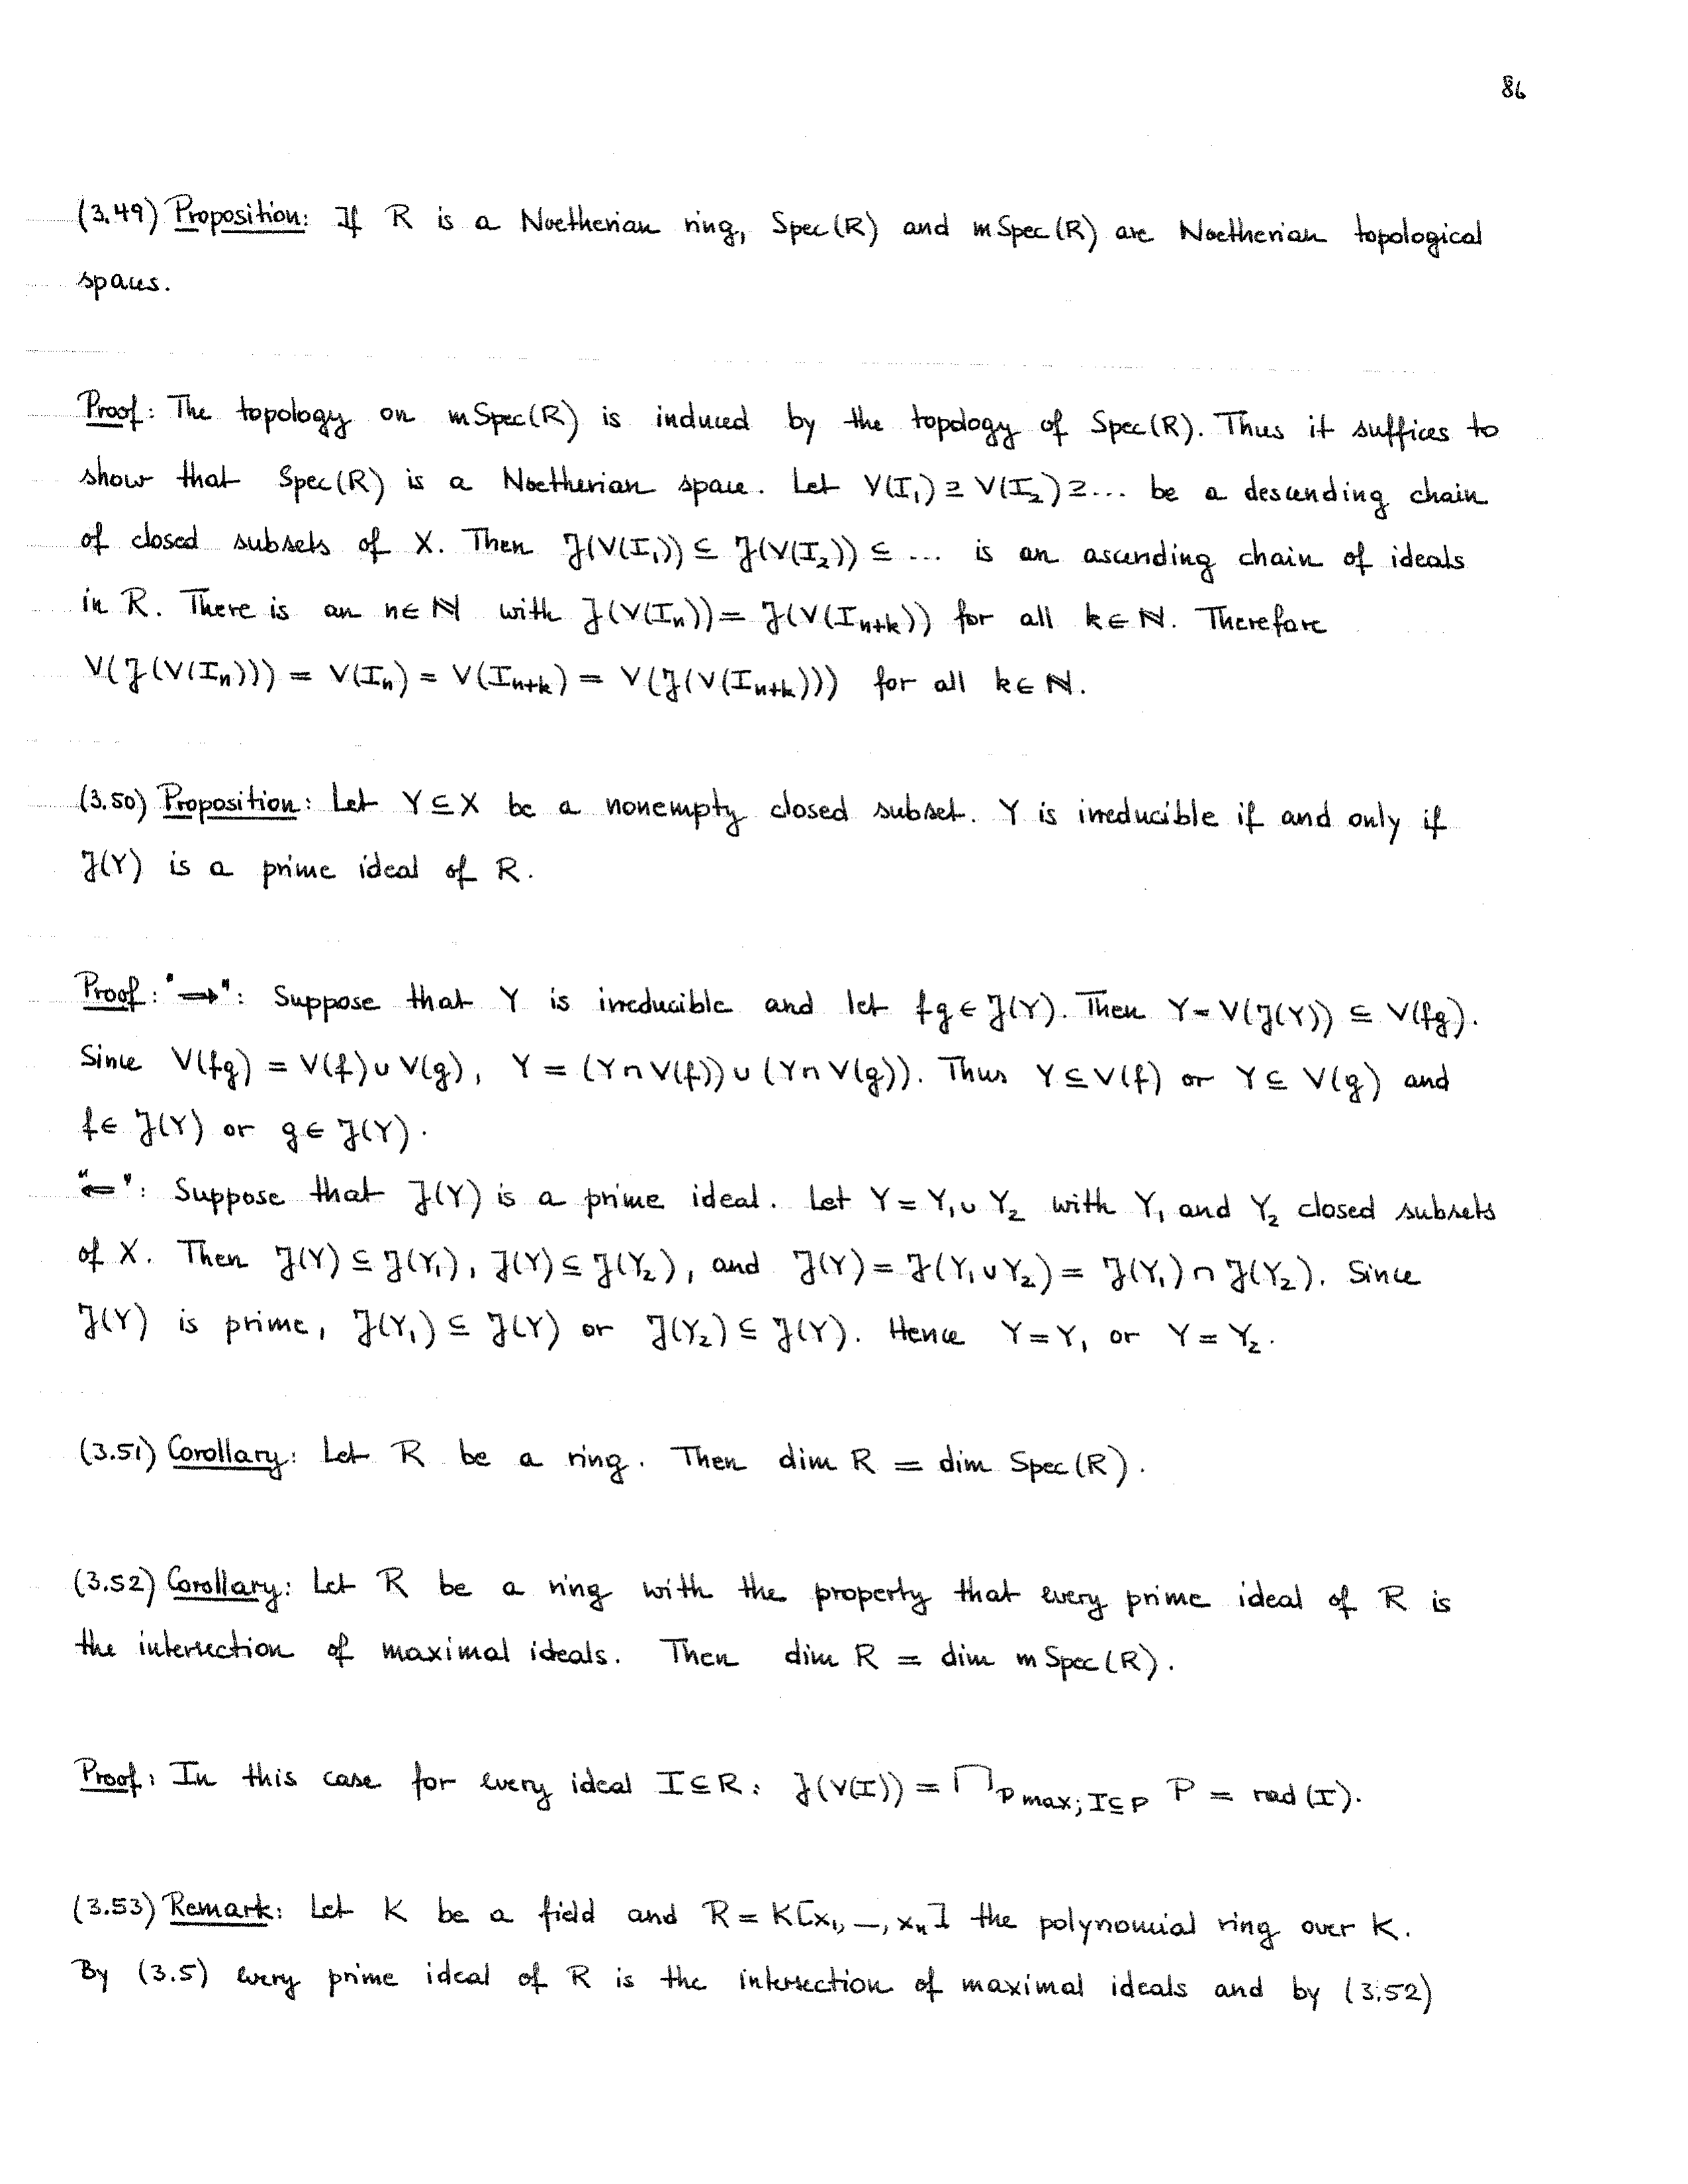 86
(3.49) Proposition: If R is a Noetherian ring, Spec(R) and mSpec(R) are Noetherian topological
spaces.
Proof: The topology on mSpec(R) is induced by the topology of Spec(R). Thus it suffices to
show that Spec(R) is a Noetherian space. Let V(I₁) ⊇ V(I₂) ⊇ ... be a descending chain
of closed subsets of X. Then 𝒥(V(I₁)) ⊆ 𝒥(V(I₂)) ⊆ ... is an ascending chain of ideals
in R. There is an n ∈ ℕ with 𝒥(V(Iₙ)) = 𝒥(V(Iₙ₊ₖ)) for all k ∈ ℕ. Therefore
V(𝒥(V(Iₙ))) = V(Iₙ) = V(Iₙ₊ₖ) = V(𝒥(V(Iₙ₊ₖ))) for all k ∈ ℕ.
(3.50) Proposition: Let Y ⊆ X be a nonempty closed subset. Y is irreducible if and only if
𝒥(Y) is a prime ideal of R.
Proof: "⟹": Suppose that Y is irreducible and let fg ∈ 𝒥(Y). Then Y = V(𝒥(Y)) ⊆ V(fg).
Since V(fg) = V(f) ∪ V(g), Y = (Y ∩ V(f)) ∪ (Y ∩ V(g)). Thus Y ⊆ V(f) or Y ⊆ V(g) and
f ∈ 𝒥(Y) or g ∈ 𝒥(Y).
"⟸": Suppose that 𝒥(Y) is a prime ideal. Let Y = Y₁ ∪ Y₂ with Y₁ and Y₂ closed subsets
of X. Then 𝒥(Y) ⊆ 𝒥(Y₁), 𝒥(Y) ⊆ 𝒥(Y₂), and 𝒥(Y) = 𝒥(Y₁ ∪ Y₂) = 𝒥(Y₁) ∩ 𝒥(Y₂). Since
𝒥(Y) is prime, 𝒥(Y₁) ⊆ 𝒥(Y) or 𝒥(Y₂) ⊆ 𝒥(Y). Hence Y = Y₁ or Y = Y₂.
(3.51) Corollary: Let R be a ring. Then dim R = dim Spec(R).
(3.52) Corollary: Let R be a ring with the property that every prime ideal of R is
the intersection of maximal ideals. Then dim R = dim mSpec(R).
Proof: In this case for every ideal I ⊆ R: 𝒥(V(I)) = ⋂_{P max; I ⊆ P} P = rad(I).
(3.53) Remark: Let K be a field and R = K[x₁, —, xₙ] the polynomial ring over K.
By (3.5) every prime ideal of R is the intersection of maximal ideals and by (3.52)